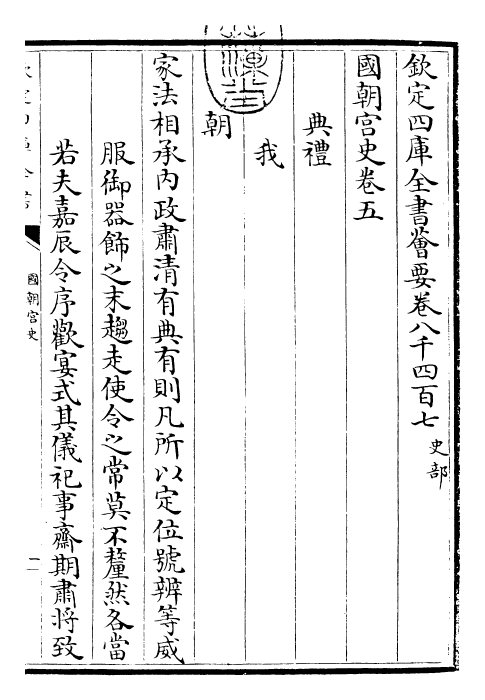 欽定四庫全書薈要卷八千四百七 史部
國朝宮史卷五
典禮
我
朝
家法相承內政肅清有典有則凡所以定位號辨等威
服御器飾之末趨走使令之常莫不釐然各當
若夫嘉辰令序歡宴式其儀祀事齋期肅將致
國朝宮史
一